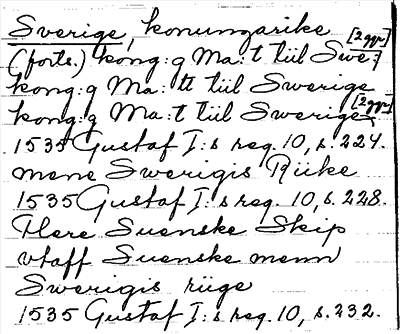 Sverige, konungarike
(forts.) kong:g Ma:t tiil Swe: [2 ggr]
kong:g Ma:tt tiil Swerige
kong:g Ma:t tiil Swerige [2 ggr]
1535 Gustaf I:s reg. 10, s. 224.
mene Swerigis Riike
1535 Gustaf I:s reg. 10, s. 228.
Flere Suenske Skip
vtaff Suenske menn
Swerigis riige
1535 Gustaf I:s reg. 10, s. 232.